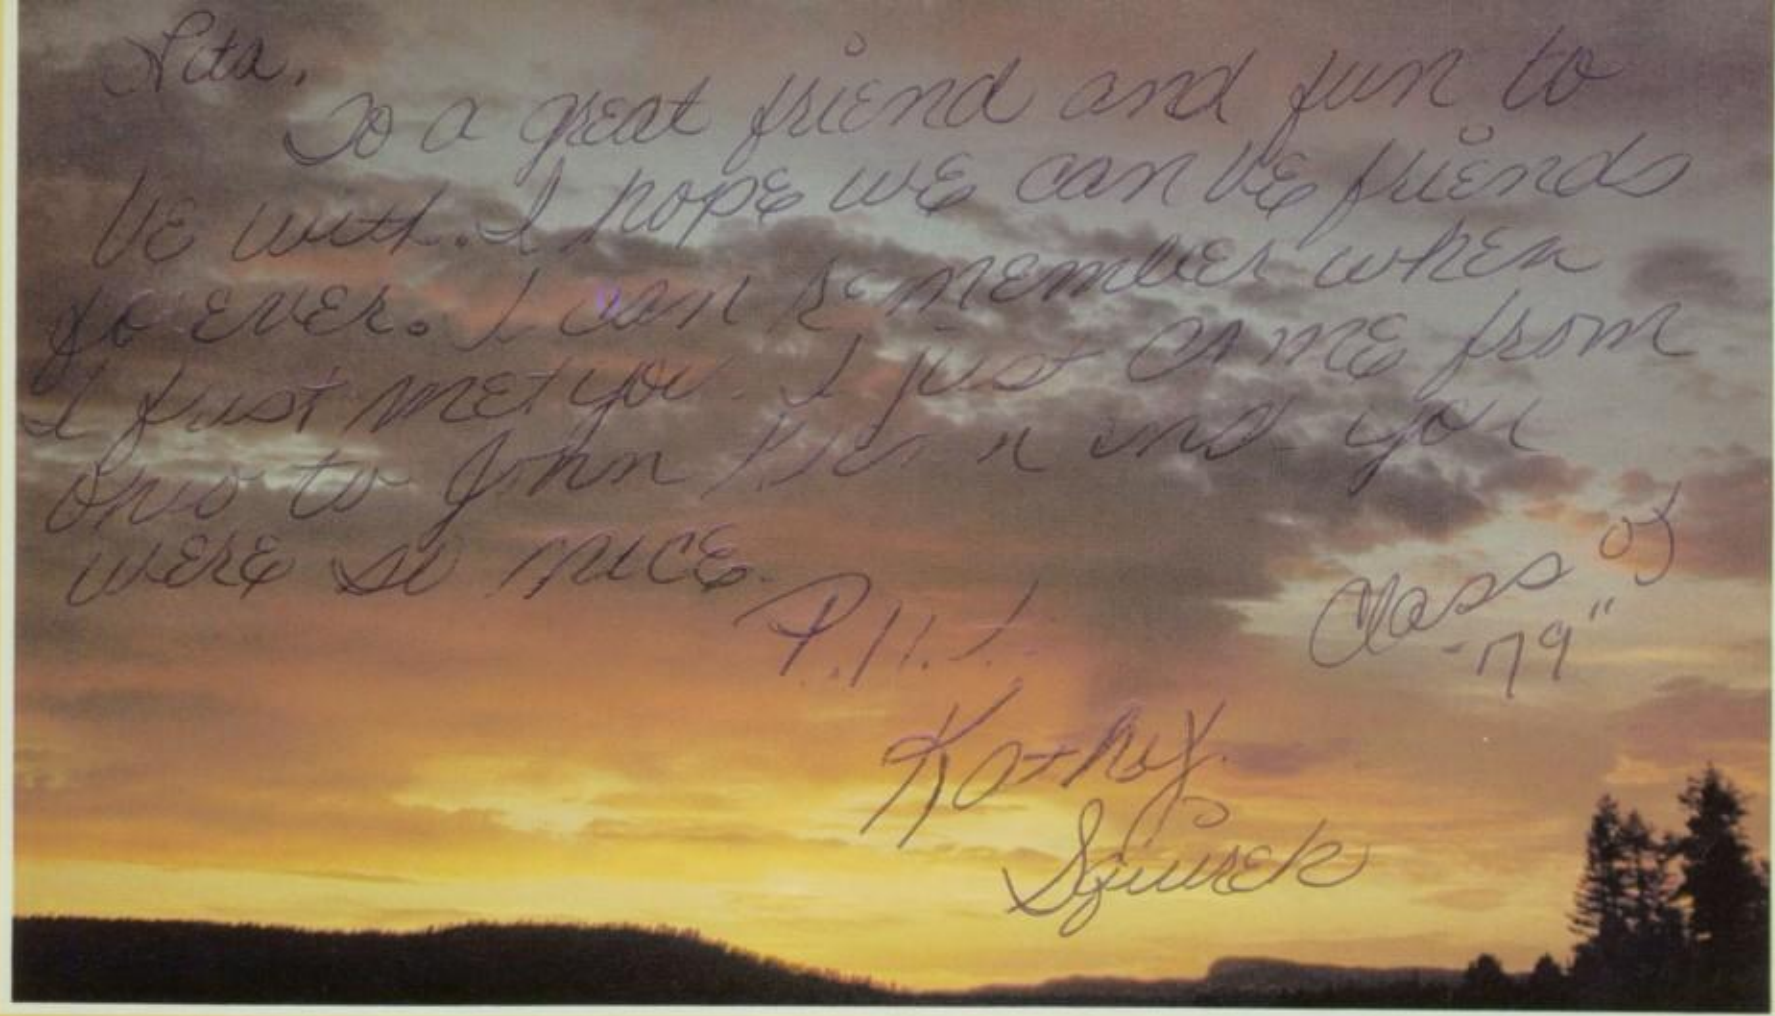 To a great friend and fun to
be with. I hope we can be friends
fo ever. I can remember when
I first met you. I just came from
to John and you
were so nice.
Class of
"79"
Kathy